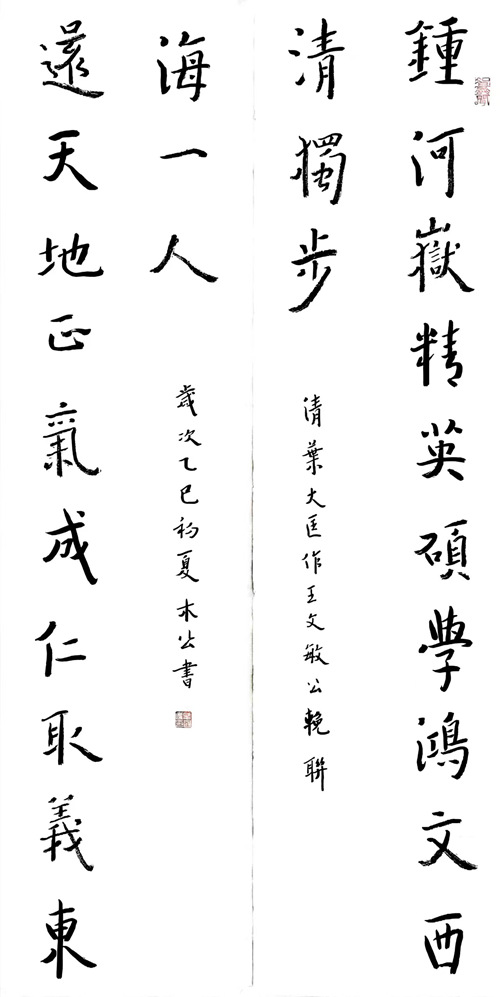 鍾河嶽精英碩學鴻文西
清獨步
清葉大匡作王文敏公輓聯
還天地正氣成仁取義東
海一人
歲次乙巳初夏木公書